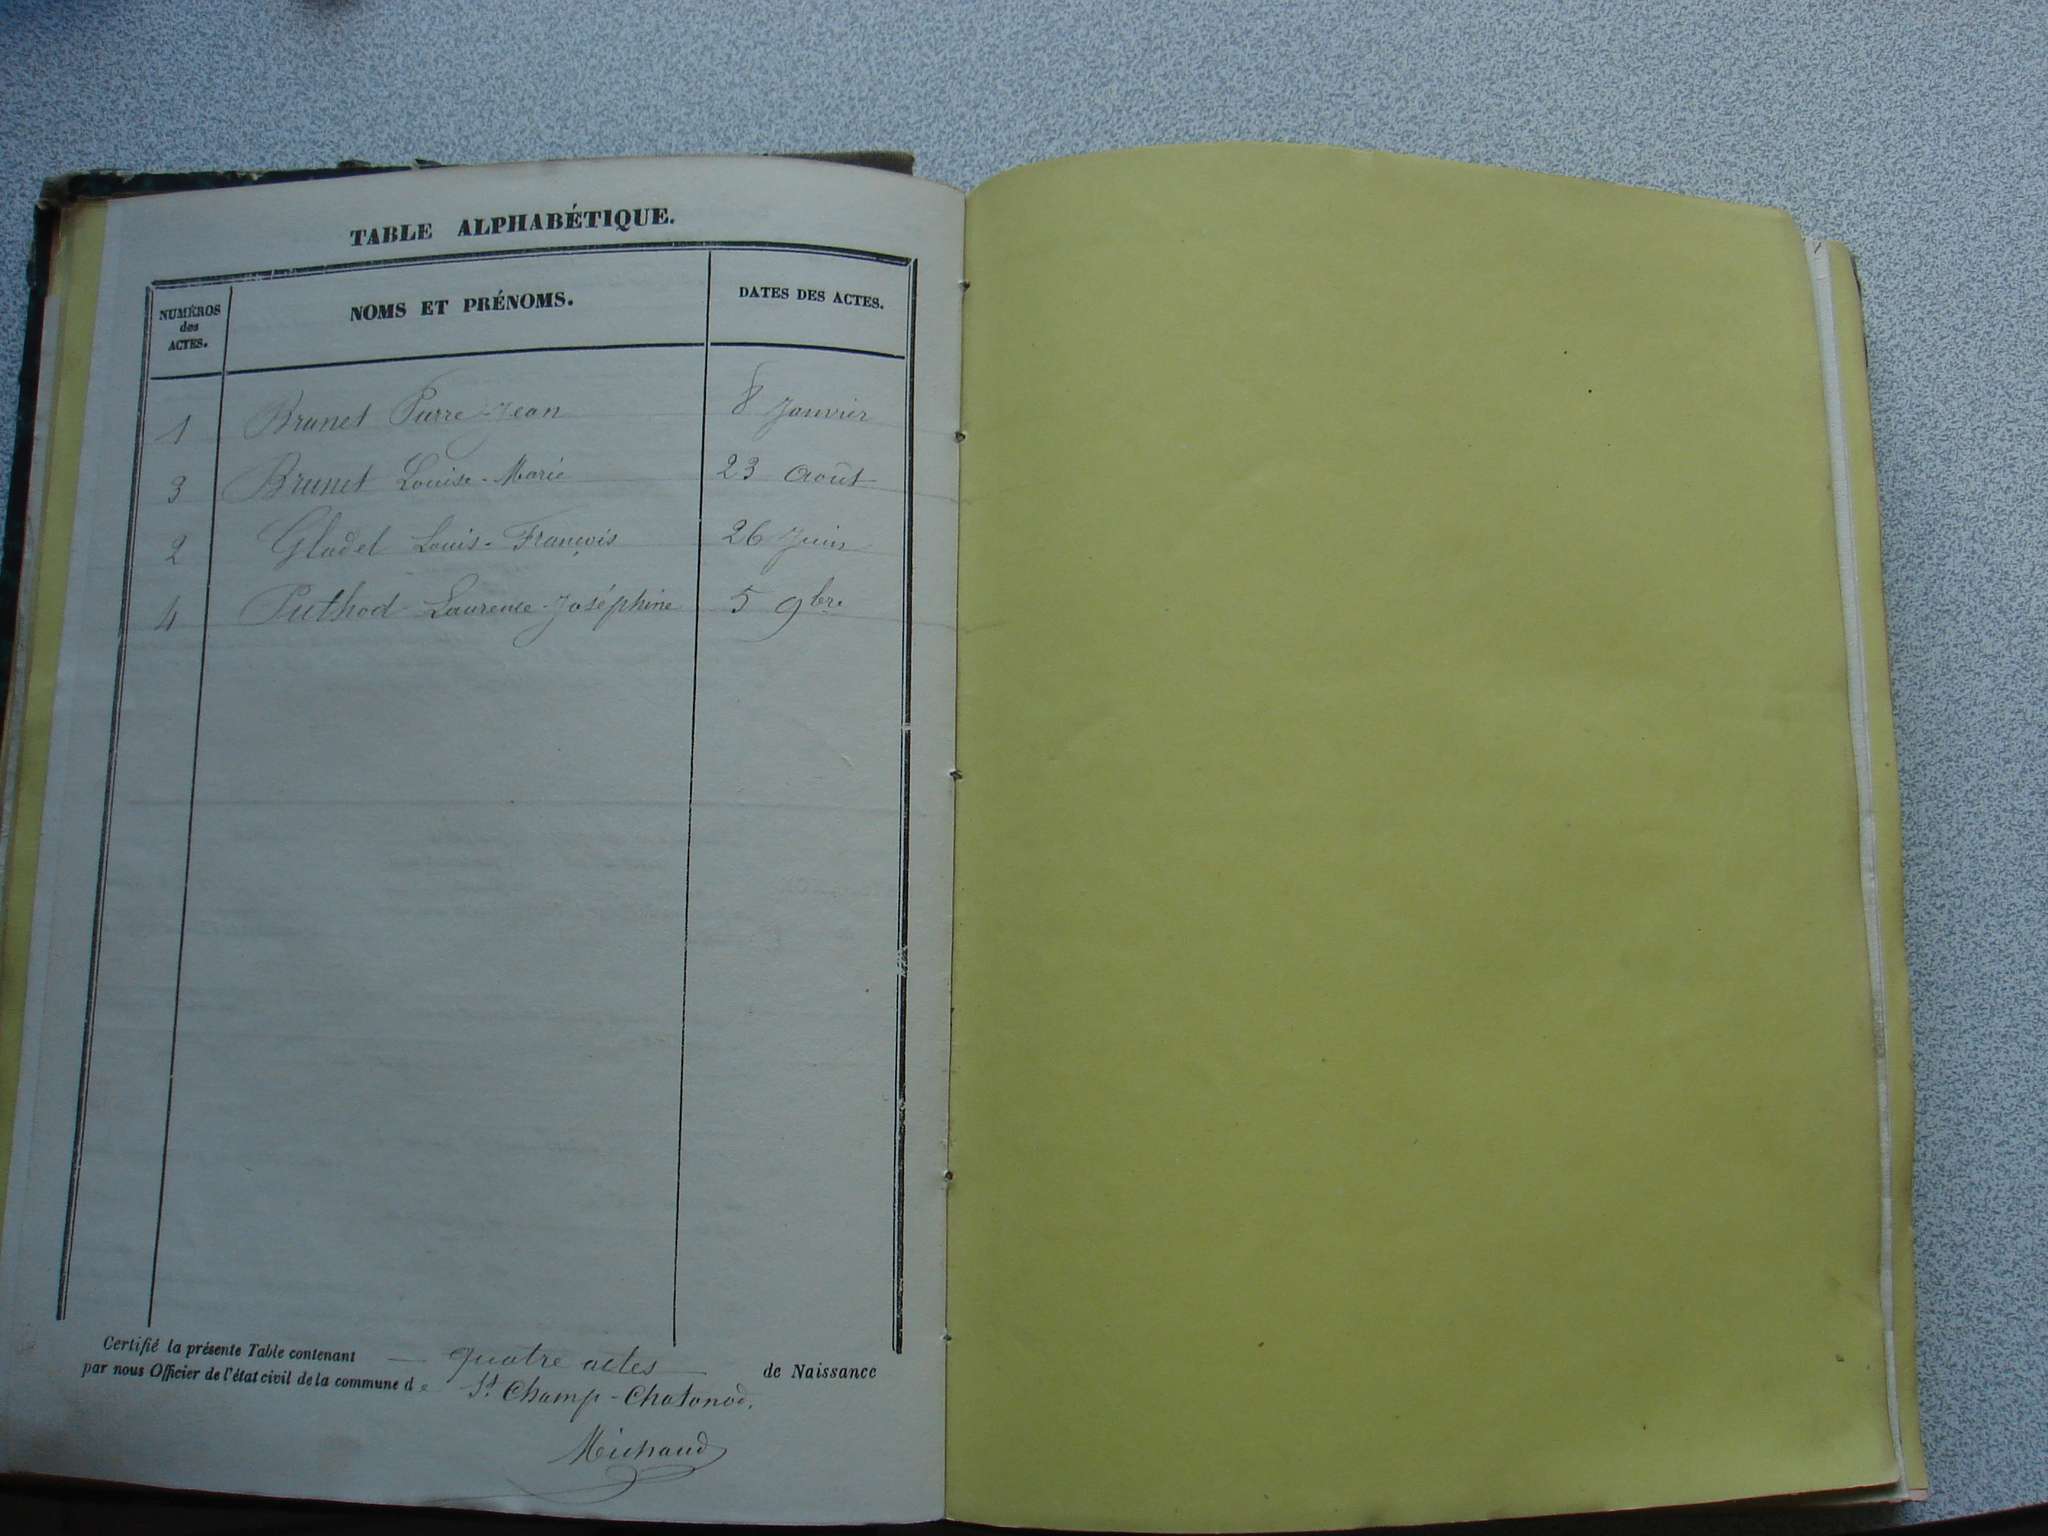 TABLE ALPHABÉTIQUE.
NUMÉROS des ACTES.
NOMS ET PRÉNOMS.
DATES DES ACTES.
1 Brunet Pierre-Jean 8 Janvier
3 Brunet Louise-Marie 23 Août
2 Gladel Louis-François 26 Juin
4 Puthod Laurence-Joséphine 5 9bre
Certifié la présente Table contenant quatre actes de Naissance
par nous Officier de l'état civil de la commune de St Champ-Chatonod.
Michaud